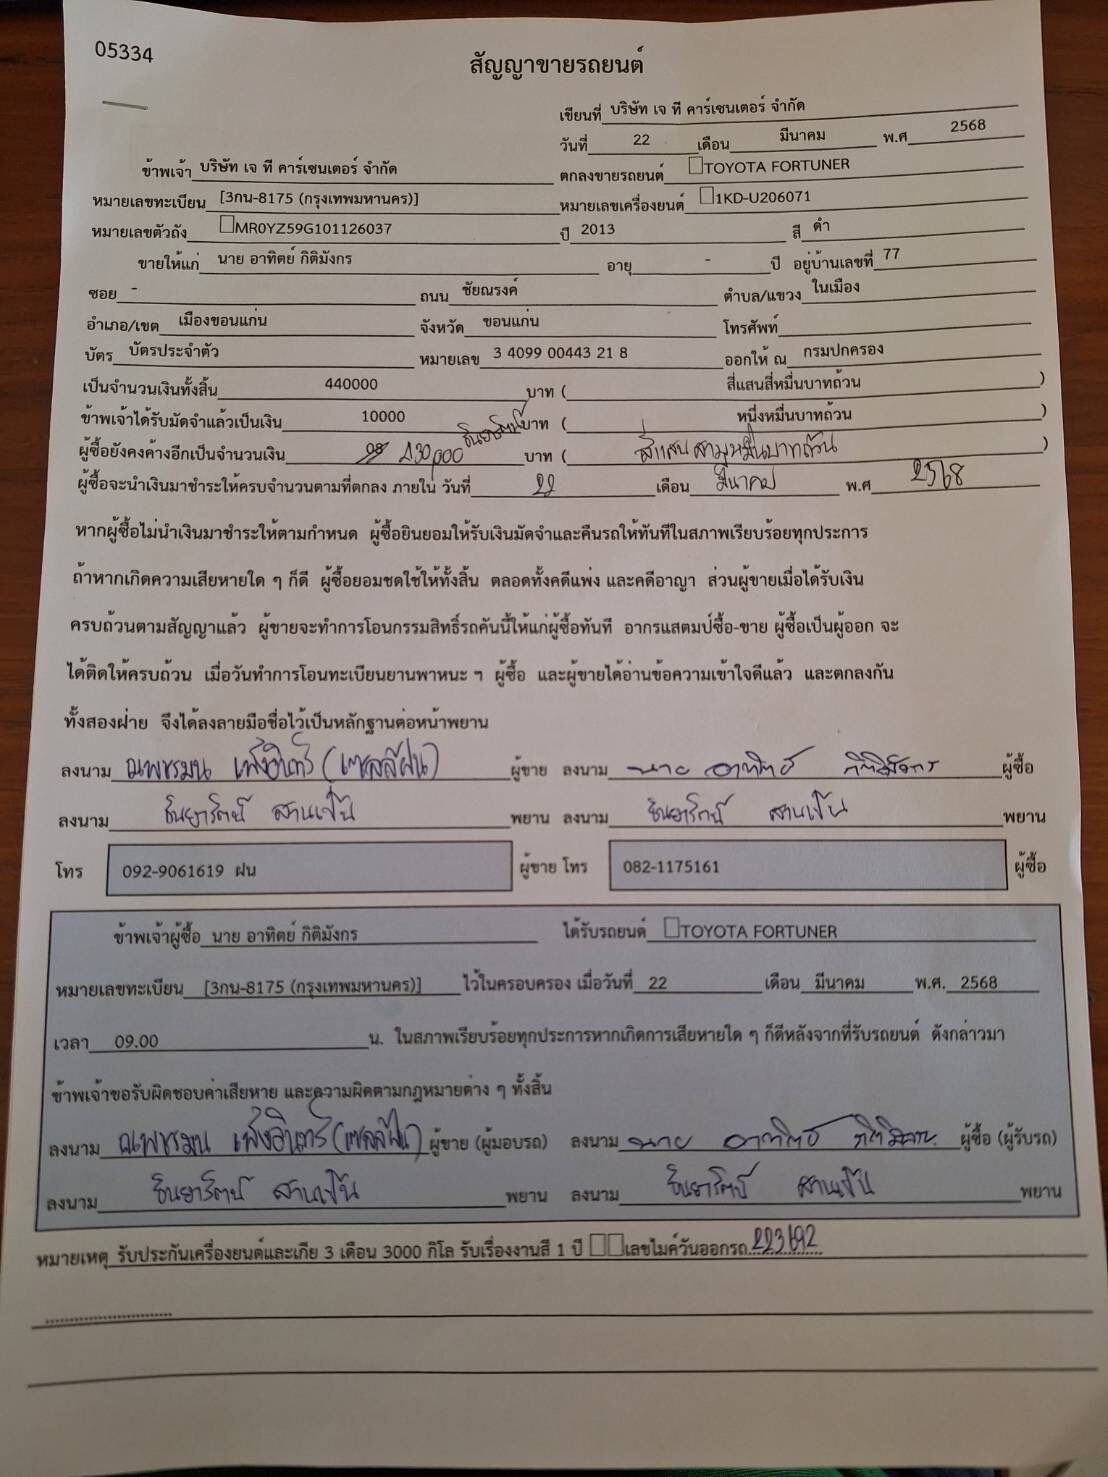 05334
สัญญาขายรถยนต์
เขียนที่ บริษัท เจ ที คาร์เซนเตอร์ จำกัด
วันที่ 22 เดือน มีนาคม พ.ศ 2568
ข้าพเจ้า บริษัท เจ ที คาร์เซนเตอร์ จำกัด ตกลงขายรถยนต์ TOYOTA FORTUNER
หมายเลขทะเบียน [3กน-8175 (กรุงเทพมหานคร)] หมายเลขเครื่องยนต์ 1KD-U206071
หมายเลขตัวถัง MR0YZ59G101126037 ปี 2013 สี ดำ
ขายให้แก่ นาย อาทิตย์ กิติมังกร อายุ - ปี อยู่บ้านเลขที่ 77
ซอย - ถนน ชัยณรงค์ ตำบล/แขวง ในเมือง
อำเภอ/เขต เมืองขอนแก่น จังหวัด ขอนแก่น โทรศัพท์
บัตร บัตรประจำตัว หมายเลข 3 4099 00443 21 8 ออกให้ ณ กรมปกครอง
เป็นจำนวนเงินทั้งสิ้น 440000 บาท ( สี่แสนสี่หมื่นบาทถ้วน )
ข้าพเจ้าได้รับมัดจำแล้วเป็นเงิน 10000 บาท ( หนึ่งหมื่นบาทถ้วน )
ผู้ซื้อยังคงค้างอีกเป็นจำนวนเงิน 430,000 ธันยารัตน์ บาท ( สี่แสนสามหมื่นบาทถ้วน )
ผู้ซื้อจะนำเงินมาชำระให้ครบจำนวนตามที่ตกลง ภายใน วันที่ 22 เดือน มีนาคม พ.ศ 2568
หากผู้ซื้อไม่นำเงินมาชำระให้ตามกำหนด ผู้ซื้อยินยอมให้รับเงินมัดจำและคืนรถให้ทันทีในสภาพเรียบร้อยทุกประการ
ถ้าหากเกิดความเสียหายใด ๆ ก็ดี ผู้ซื้อยอมชดใช้ให้ทั้งสิ้น ตลอดทั้งคดีแพ่ง และคดีอาญา ส่วนผู้ขายเมื่อได้รับเงิน
ครบถ้วนตามสัญญาแล้ว ผู้ขายจะทำการโอนกรรมสิทธิ์รถคันนี้ให้แก่ผู้ซื้อทันที อากรแสตมป์ซื้อ-ขาย ผู้ซื้อเป็นผู้ออก จะ
ได้ติดให้ครบถ้วน เมื่อวันทำการโอนทะเบียนยานพาหนะ ฯ ผู้ซื้อ และผู้ขายได้อ่านข้อความเข้าใจดีแล้ว และตกลงกัน
ทั้งสองฝ่าย จึงได้ลงลายมือชื่อไว้เป็นหลักฐานต่อหน้าพยาน
ลงนาม ณพชรมน เพ็งอินทร์ (เซลล์ฝน) ผู้ขาย ลงนาม นาย อาทิตย์ กิติมังกร ผู้ซื้อ
ลงนาม ธันยารัตน์ สานเงิน พยาน ลงนาม ธันยารัตน์ สานเงิน พยาน
โทร 092-9061619 ฝน ผู้ขาย โทร 082-1175161 ผู้ซื้อ
ข้าพเจ้าผู้ซื้อ นาย อาทิตย์ กิติมังกร ได้รับรถยนต์ TOYOTA FORTUNER
หมายเลขทะเบียน [3กน-8175 (กรุงเทพมหานคร)] ไว้ในครอบครอง เมื่อวันที่ 22 เดือน มีนาคม พ.ศ. 2568
เวลา 09.00 น. ในสภาพเรียบร้อยทุกประการหากเกิดการเสียหายใด ๆ ก็ดีหลังจากที่รับรถยนต์ ดังกล่าวมา
ข้าพเจ้าขอรับผิดชอบค่าเสียหาย และความผิดตามกฎหมายต่าง ๆ ทั้งสิ้น
ลงนาม ณพชรมน เพ็งอินทร์ (เซลล์ฝน) ผู้ขาย (ผู้มอบรถ) ลงนาม นาย อาทิตย์ กิติมังกร ผู้ซื้อ (ผู้รับรถ)
ลงนาม ธันยารัตน์ สานเงิน พยาน ลงนาม ธันยารัตน์ สานเงิน พยาน
หมายเหตุ รับประกันเครื่องยนต์และเกีย 3 เดือน 3000 กิโล รับเรื่องงานสี 1 ปี เลขไมค์วันออกรถ 223692